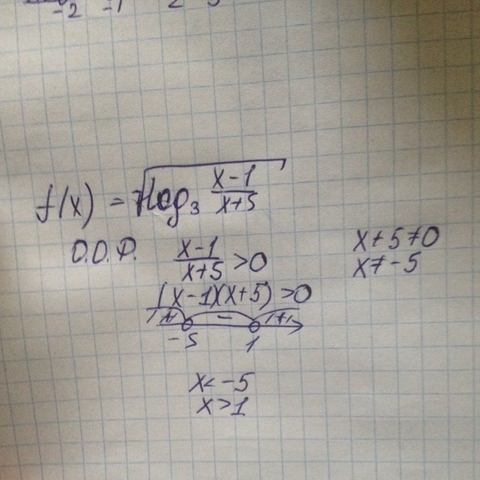 -2 -1 2
f(x) = √log₃ (x-1)/(x+5)
О.О.Р. (x-1)/(x+5) >0 x+5≠0
x≠-5
(x-1)(x+5)>0
+ - +
-5 1
x<-5
x>1